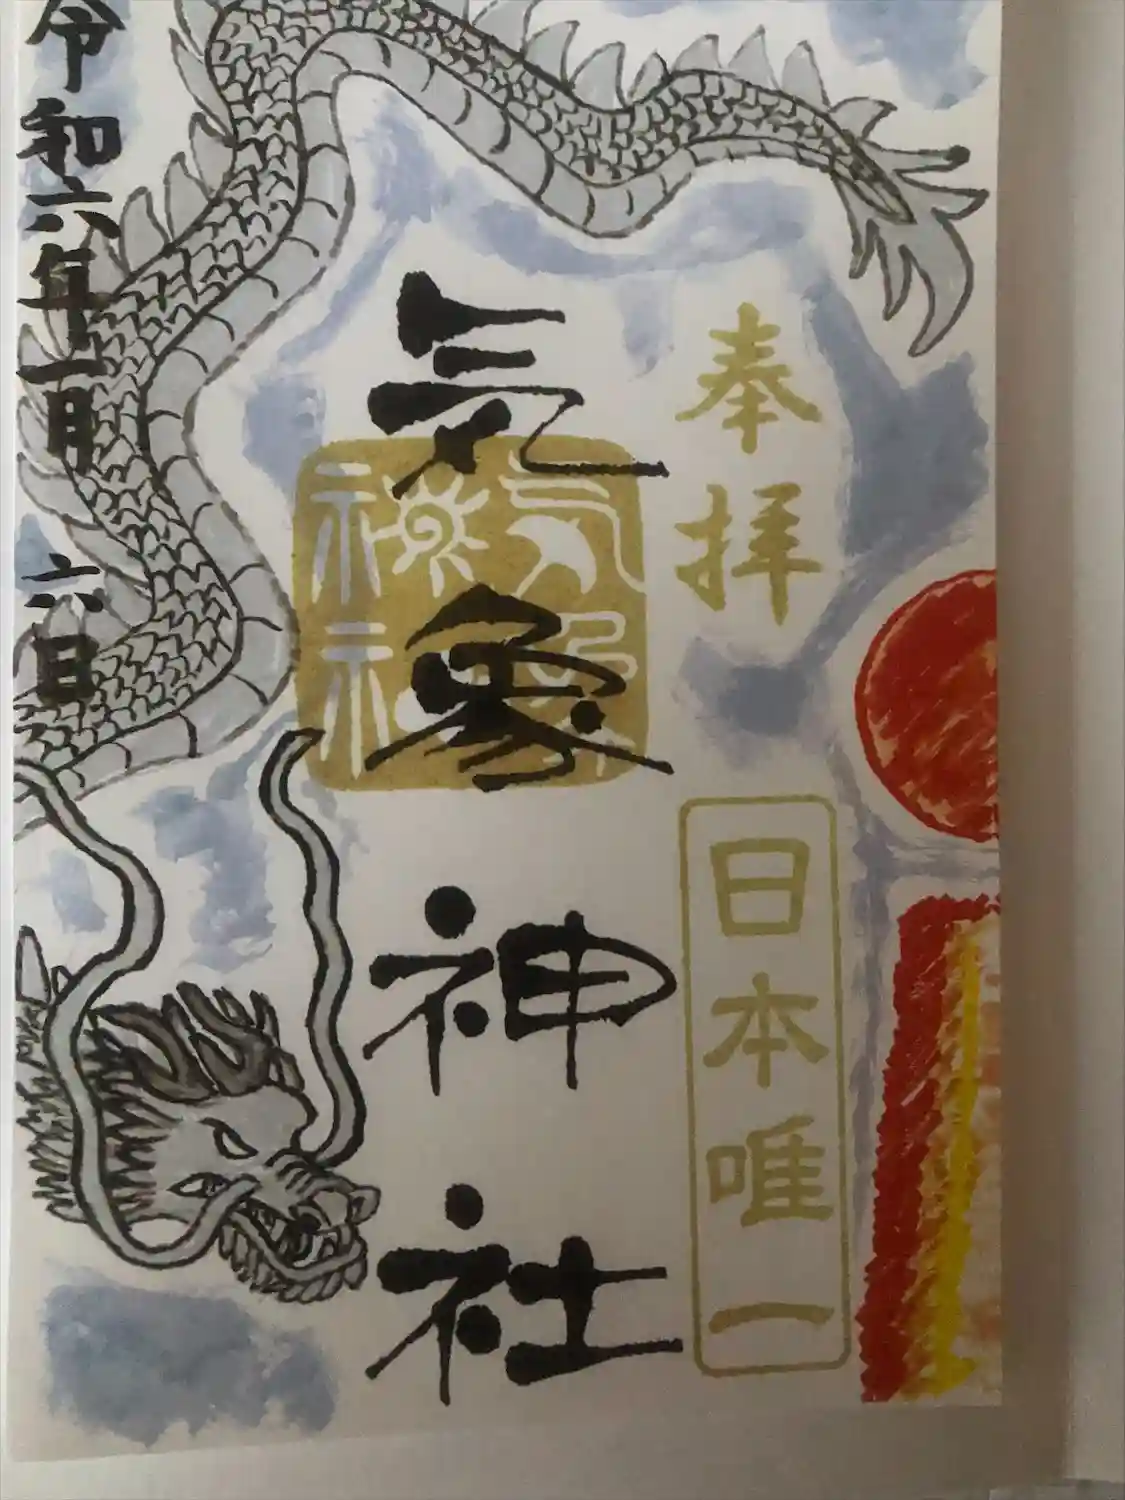 奉拝
日本唯一
気象神社
気象神社
令和六年一月 六日